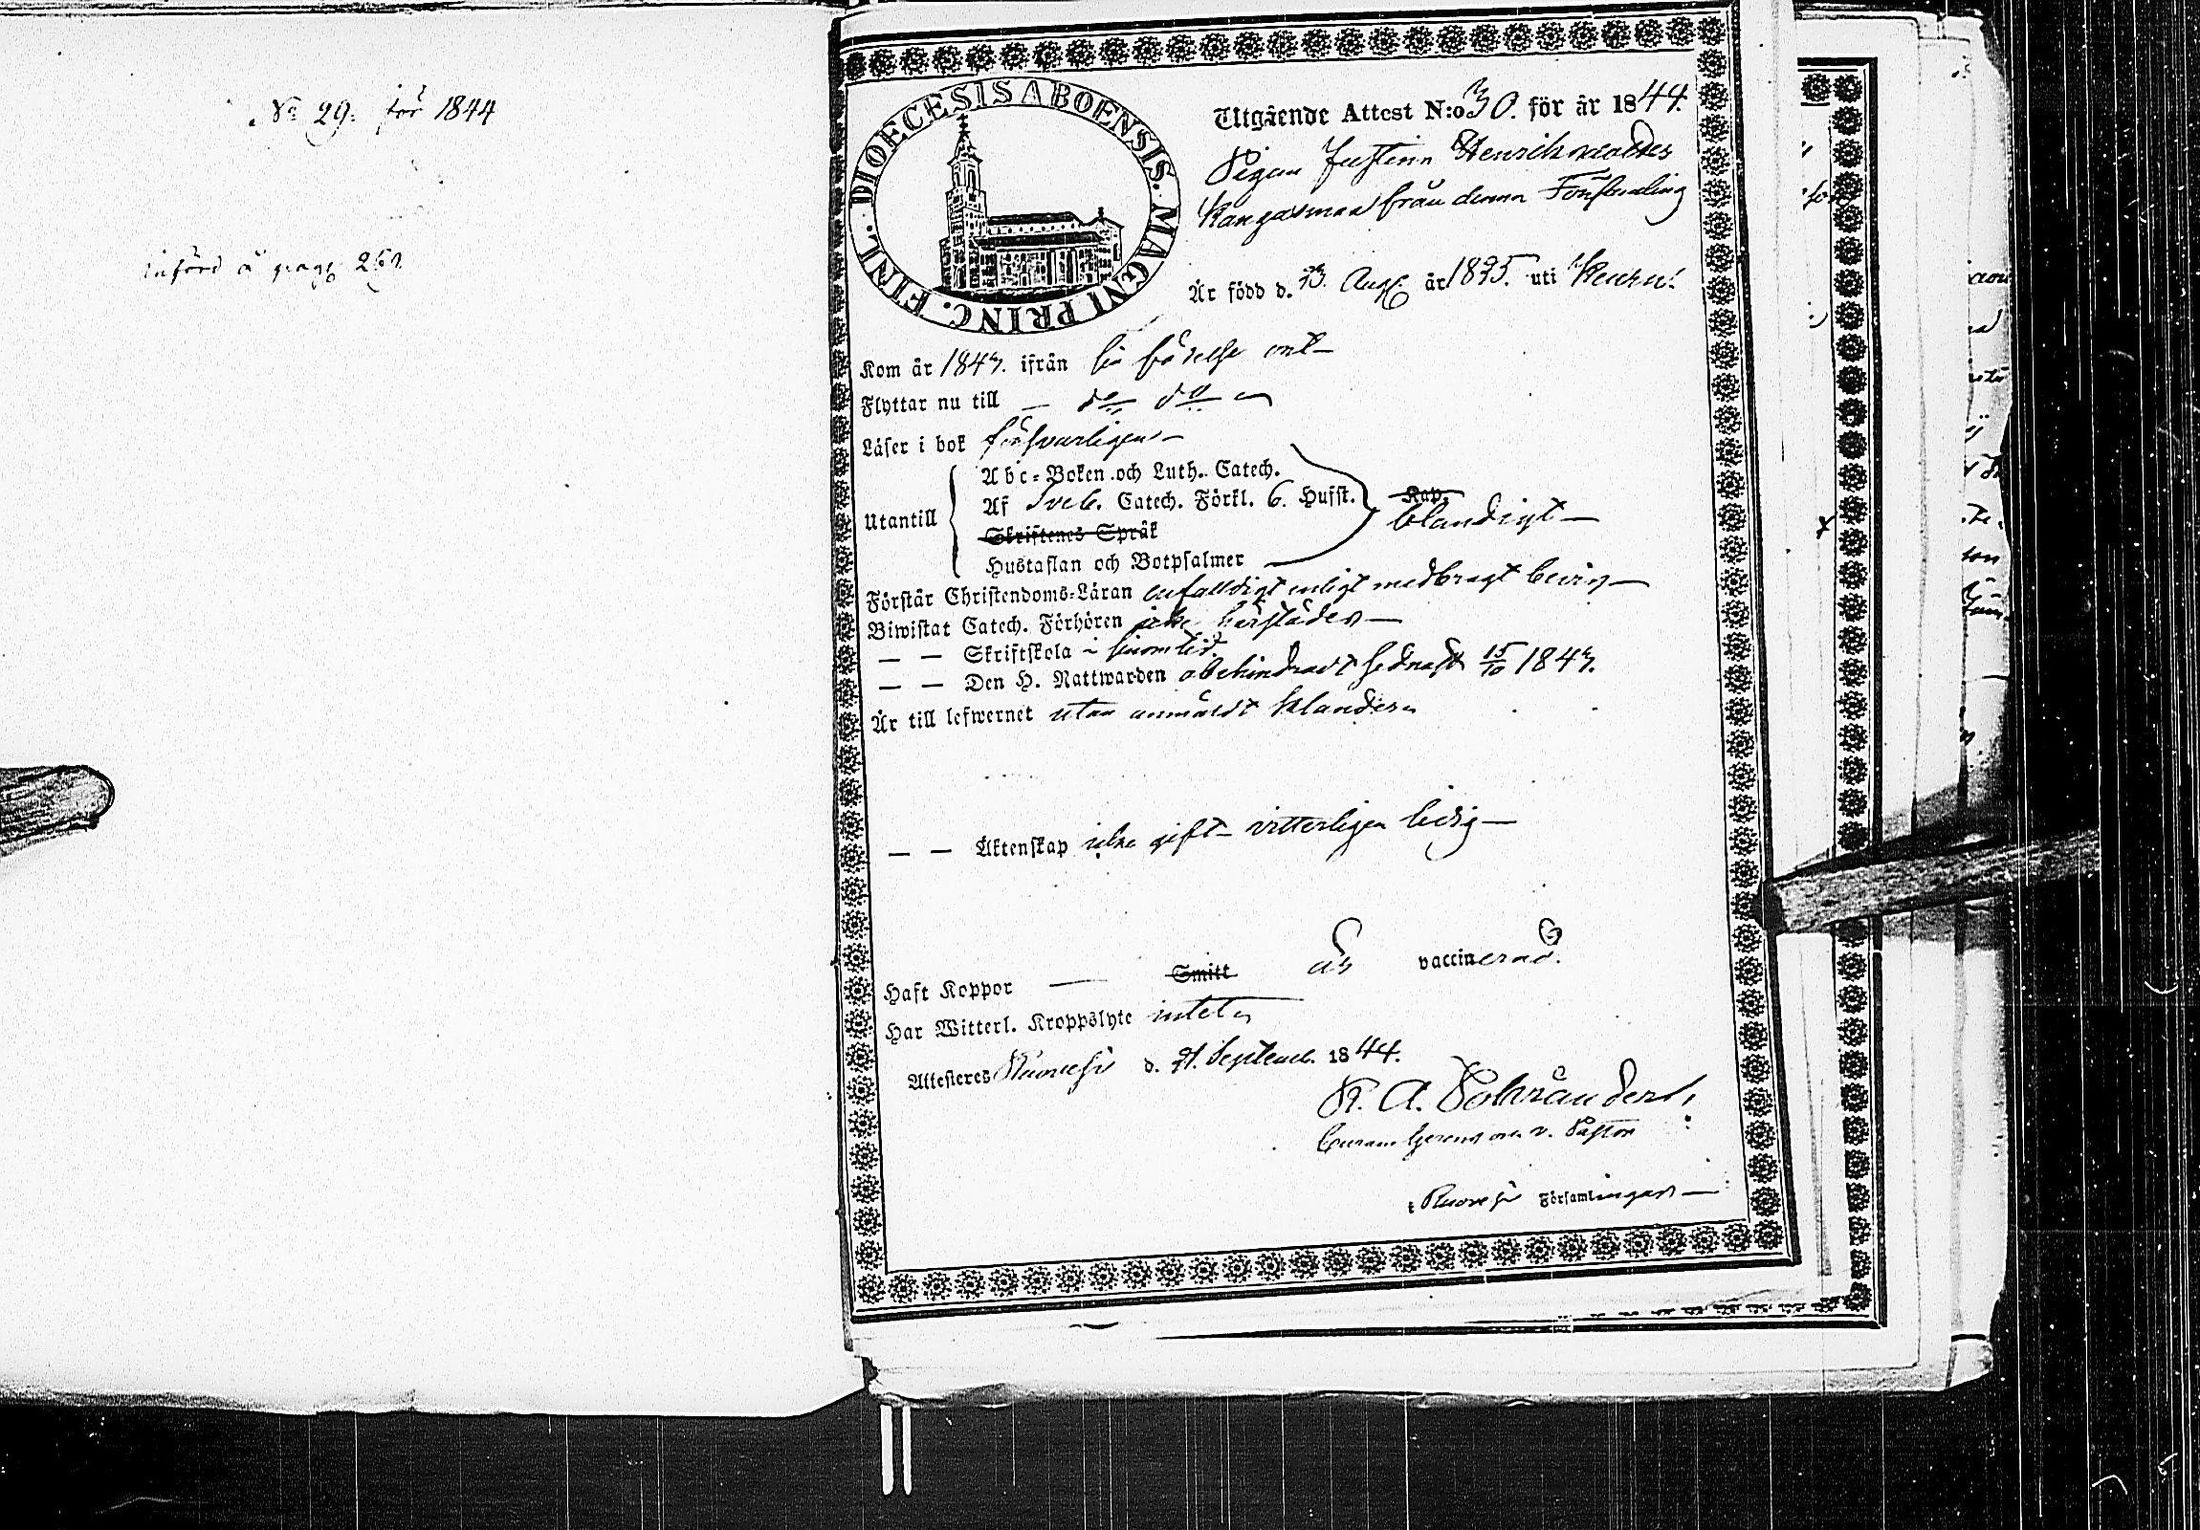 No 29. för 1844
införd å pag.
DIOECESIS ABOENSIS. MAGNI PRINC. FINL.
Utgående Attest N:o 30. för år 1844.
Pigan Justina Henriksdotter
Kangasmaa från denna Församling
Är född d. Aug. år 1825. uti Keuru.
Kom år 1843. ifrån sin födelse ort—
Flyttar nu till — do do
Läser i bok försvarligen—
Abc-Boken och Luth. Catech.
Utantill Af Sveb. Catech. Förkl. 6. Hufst. Kap. blandigt—
Skriftenes Språk
Hustaflan och Botpsalmer —
Förstår Christendoms-Läran enfaldigt enligt medbragt bevis—
Biwistat Catech. Förhören icke härstädes—
— — Skriftskola i sinom tid.
— — Den H. Nattwarden obehindradt sednast 15/10 1843.
Är till lefwernet utan anmäldt klander
— — Äktenskap icke gift— vitterligen ledig—
Haft Koppor — Smitt är vaccinerad.
Har Witterl. Kroppslyte intet
Attesteres Ruovesi d. 21. Septemb. 1844.
K. A. Polviander
v. Pastor
i Ruovesi Församlingar—